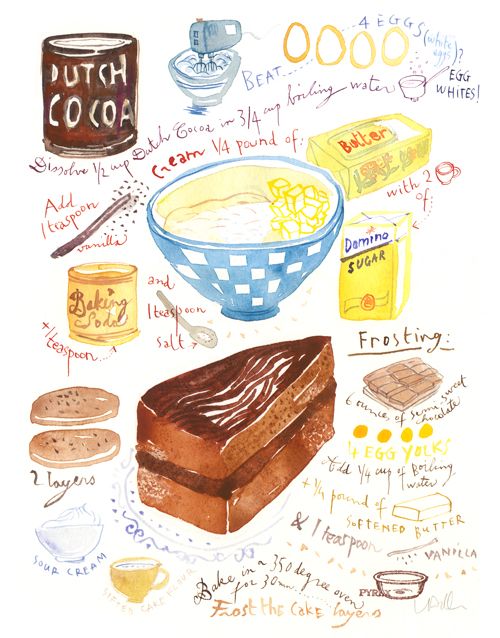 4 EGGS (white eggs)?
DUTCH COCOA
BEAT
EGG WHITES!
Dissolve 1/2 cup Dutch Cocoa in 3/4 cup boiling water
Cream 1/4 pound of:
Butter
with 2 of:
Add 1 teaspoon vanilla
Domino SUGAR
Baking Soda
+1 teaspoon
and 1 teaspoon salt
Frosting:
6 ounces of semi sweet chocolate
4 EGG YOLKS
Add 1/4 cup of Boiling water
+ 1/4 pound of SOFTENED BUTTER
& 1 teaspoon VANILLA
2 layers
SOUR CREAM
SIFTED CAKE FLOUR
Bake in a 350 degree oven for 30 min.
PYREX
Frost the CAKE layers